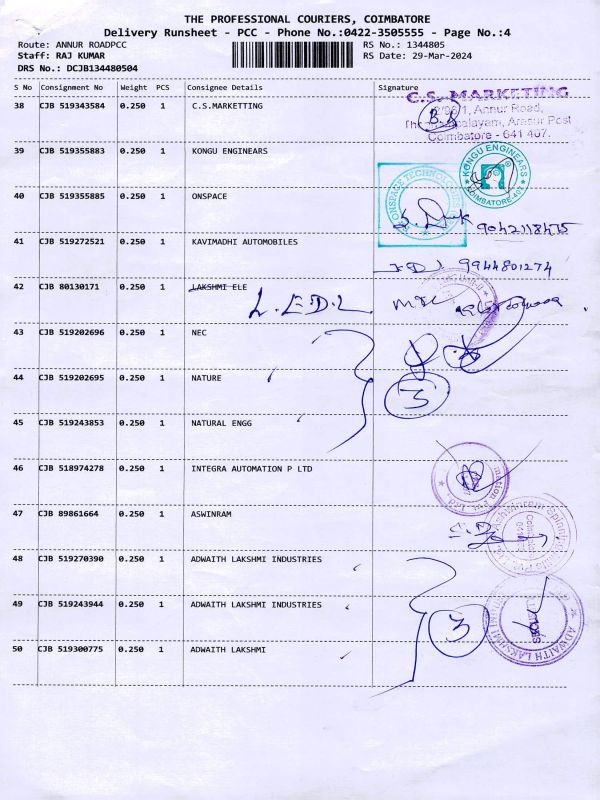 THE PROFESSIONAL COURIERS, COIMBATORE
Delivery Runsheet - PCC - Phone No.:0422-3505555 - Page No.:4
Route: ANNUR ROADPCC RS No.: 1344805
Staff: RAJ KUMAR RS Date: 29-Mar-2024
DRS No.: DCJB134480504
S No Consignment No Weight PCS Consignee Details Signature
38 CJB 519343584 0.250 1 C.S.MARKETTING
C.S. MARKETING
Annur Road,
Arasur Post
Coimbatore - 641 407.
39 CJB 519355883 0.250 1 KONGU ENGINEARS
KONGU ENGINEARS
COIMBATORE-407
40 CJB 519355885 0.250 1 ONSPACE
9042118475
41 CJB 519272521 0.250 1 KAVIMADHI AUTOMOBILES
9944801274
42 CJB 80130171 0.250 1 LAKSHMI ELE
L.E.D.L.
43 CJB 519202696 0.250 1 NEC
44 CJB 519202695 0.250 1 NATURE
3
45 CJB 519243853 0.250 1 NATURAL ENGG
46 CJB 518974278 0.250 1 INTEGRA AUTOMATION P LTD
47 CJB 89861664 0.250 1 ASWINRAM
48 CJB 519270390 0.250 1 ADWAITH LAKSHMI INDUSTRIES
49 CJB 519243944 0.250 1 ADWAITH LAKSHMI INDUSTRIES
3
ADWAITH LAKSHMI
50 CJB 519300775 0.250 1 ADWAITH LAKSHMI